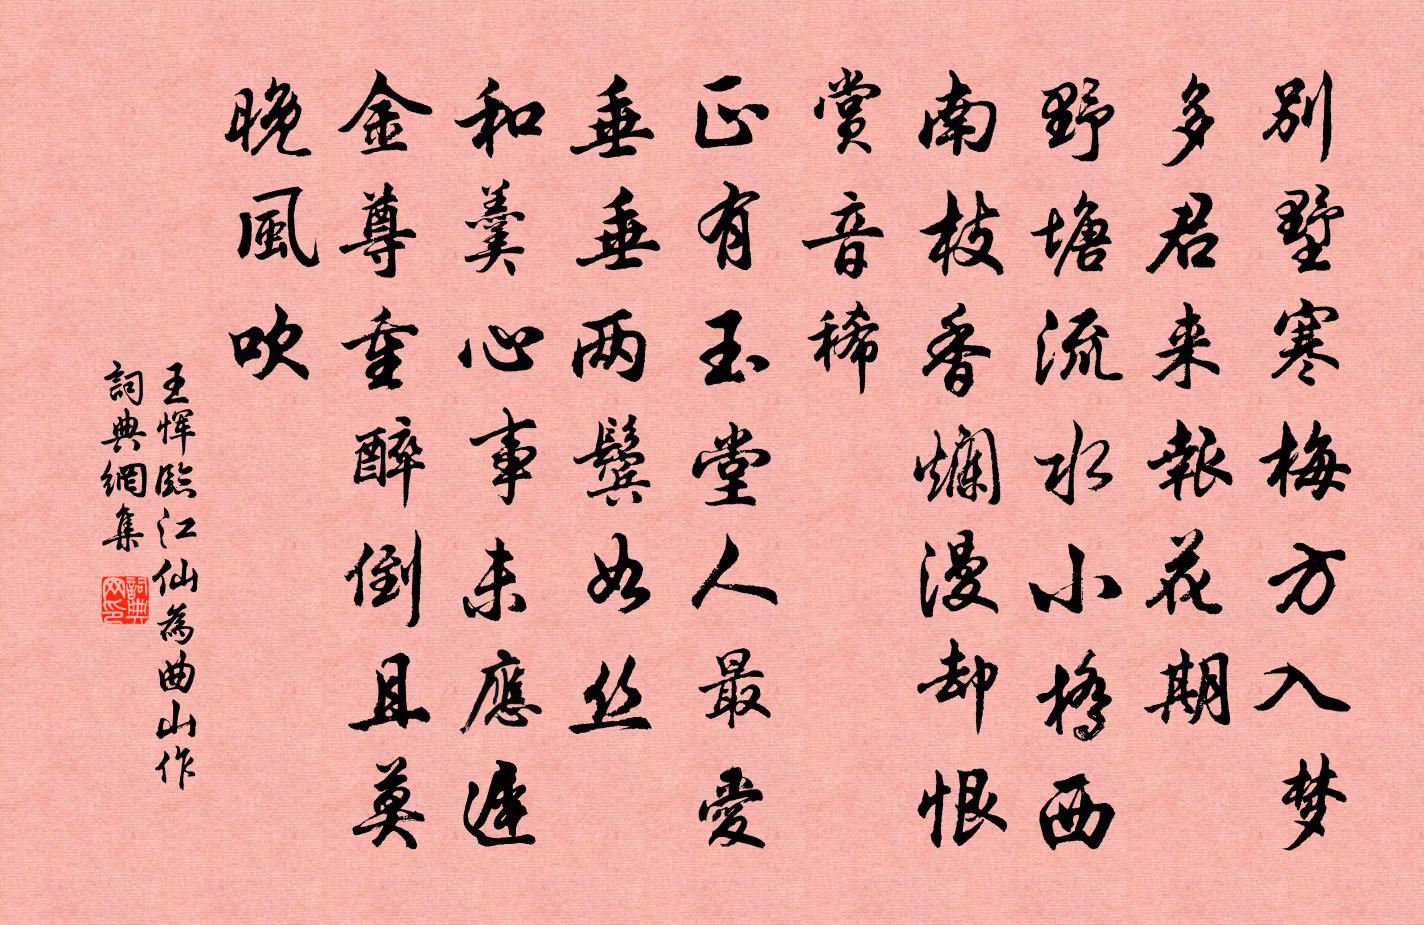 别墅寒梅方入梦
多君来報花期
野塘流水小橋西
南枝香爛漫却恨
賞音稀
正有玉堂人最愛
垂垂两鬓如丝
和羹心事未應遲
金尊重醉倒且莫
晚風吹
王惲臨江仙為曲山作
詞典網集
詞典网印